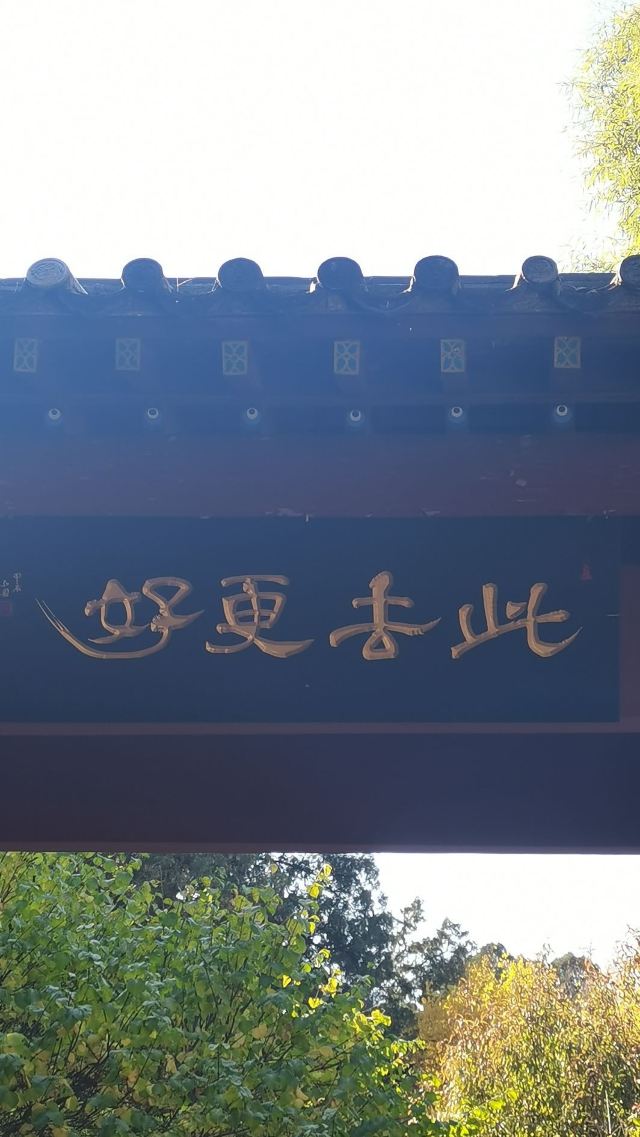 此去更好